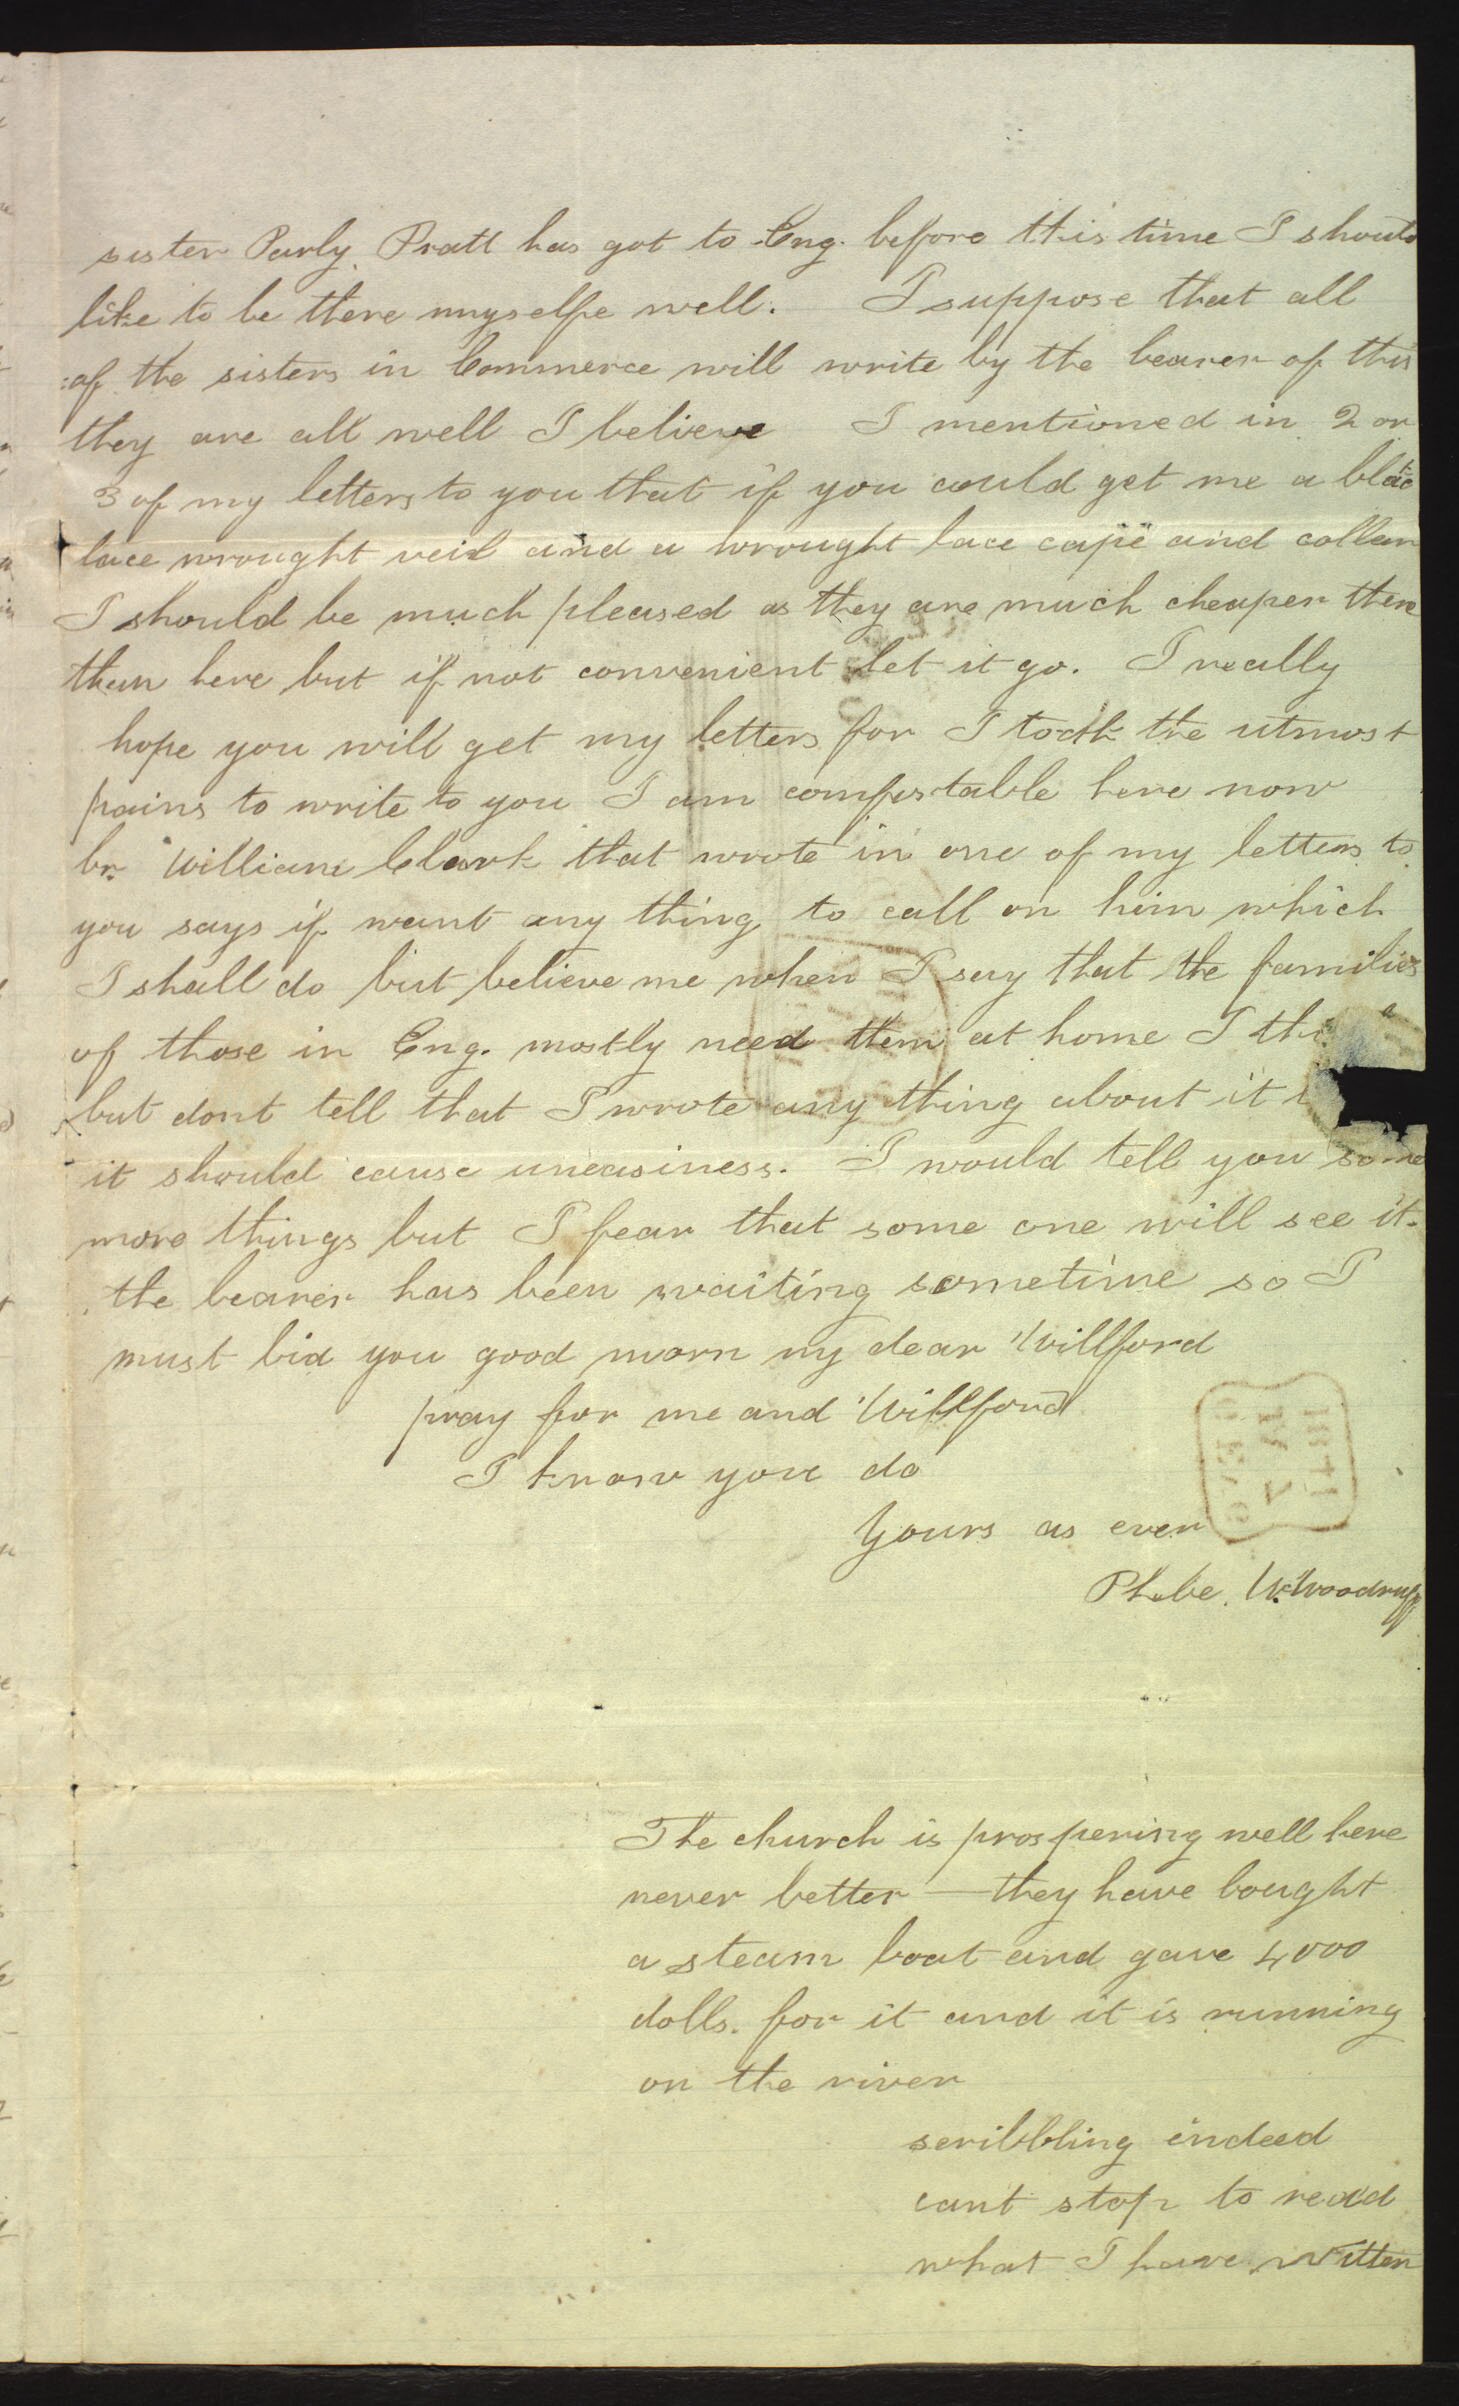 sister Parly Pratt has got to Eng. beffore this time I should
like to be there myselfe well. I suppose that all
of the sisters in Commerce will write by the bearer of this
they are all well I believe I mentioned in 2 or
3 of my letters to you that if you could get me a black
lace wrought veil and a wrought lace cape and collar
I should be much pleased as they are much cheaper there
than here but if not convenient let it go. I really
hope you will get my letters for I took the utmost
pains to write to you I am comfortable here now
br. William Clark that wrote in one of my letters to
you says if want any thing to call on him which
I shall do but believe me when I say that the families
of those in Eng. mostly need them at home I
but dont tell that I wrote any thing about it
it should cause uneasiness. I would tell you some
more things but I fear that some one will see it.
the bearer has been waiting sometime so I
must bid you good morn my dear Willford
pray for me and Willford
I know you do
Yours as ever
Phebe. W. Woodruff
The church is prospering well here
never better — they have bought
a steam boat and gave 4000
dolls. for it and it is running
on the river
scribbling indeed
cant stop to read
what I have written